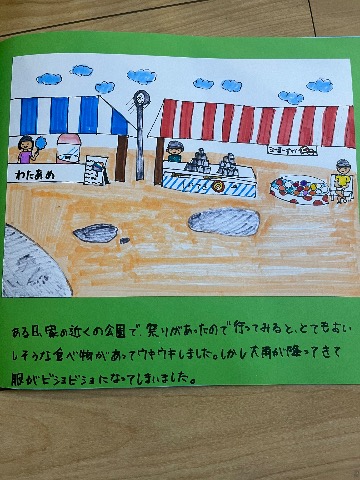 わたあめ
ある日、家の近くの公園で、祭りがあったので行ってみると、とてもよい
しそうな食べ物があってウキウキしました。しかし大雨が降ってきて
服がビショビショになってしまいました。